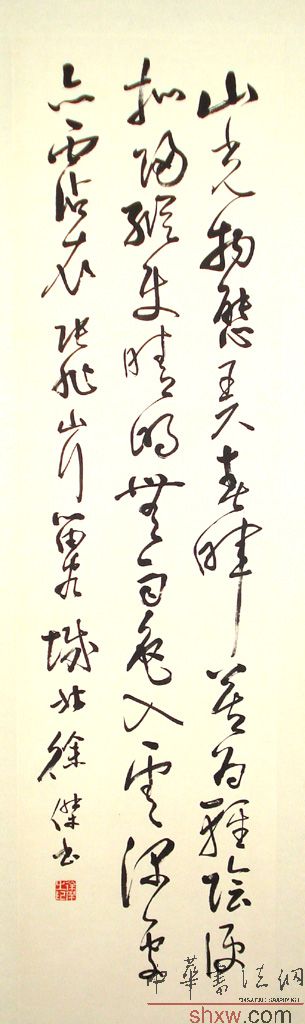 山光物態弄春暉莫為輕陰便
擬歸縱使晴明無雨色入雲深處
亦霑衣 張旭山行留客 城北徐傑書
中華書法網
shxw.com